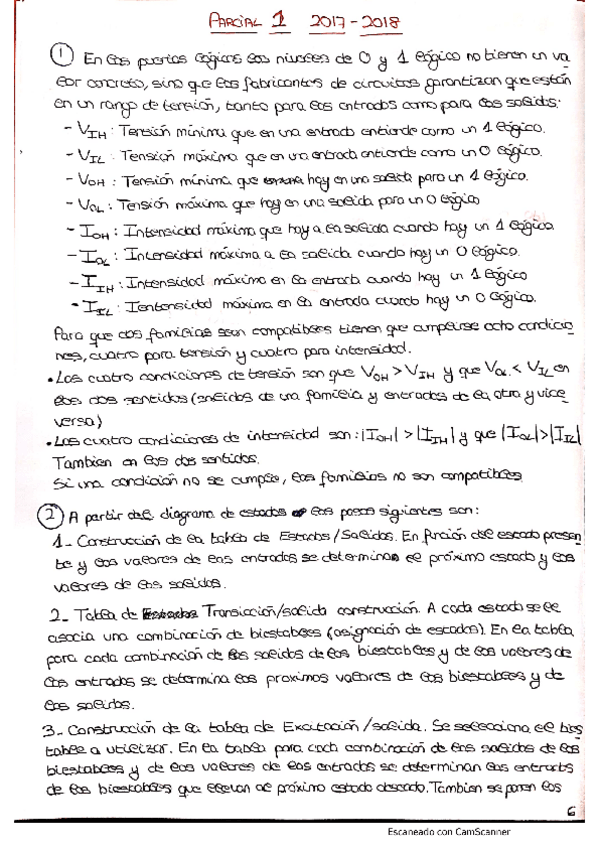 PARCIAL 1 2017-2018
① En las puertas lógicas los niveles de 0 y 1 lógico no tienen un va
lor concreto, sino que los fabricantes de circuitos garantizan que están
en un rango de tensión, tanto para las entradas como para las salidas:
- VIH: Tensión mínima que en una entrada entiende como un 1 lógico.
- VIL: Tensión máxima que en una entrada entiende como un 0 lógico.
- VOH: Tensión mínima que hay en una salida para un 1 lógico.
- VOL: Tensión máxima que hay en una salida para un 0 lógico
- IOH: Intensidad máxima que hay a la salida cuando hay un 1 lógico
- IOL: Intensidad máxima a la salida cuando hay un 0 lógico.
- IIH: Intensidad máxima en la entrada cuando hay un 1 lógico
- IIL: Ientensidad máxima en la entrada cuando hay un 0 lógico.
Para que dos familias sean compatibles tienen que cumplirse ocho condicio
nes, cuatro para tensión y cuatro para intensidad.
• Las cuatro condiciones de tensión son que VOH > VIH y que VOL < VIL en
los dos sentidos (salidas de una familia y entradas de la otra y vice
versa)
• Las cuatro condiciones de intensidad son: |IOH| > |IIH| y que |IOL|>|IIL|
Tambien en los dos sentidos.
Si una condición no se cumple, las familias no son compatibles
② A partir del diagrama de estados los pasos siguientes son:
1- Construcción de la tabla de Estados/Salidas. En función del estado presen
te y los valores de las entradas se determinan el próximo estado y los
valores de las salidas.
2- Tabla de Transicción/salida construcción. A cada estado se le
asocia una combinación de biestables (asignación de estados). En la tabla
para cada combinación de las salidas de los biestables y de los valores de
las entradas se determina los proximos valores de los biestables y de
las salidas.
3- Construcción de la tabla de Excitación/salida. Se selecciona el bies
table a utilizar. En la tabla para cada combinación de las salidas de los
biestables y de los valores de las entradas se determinan las entradas
de los biestables que llevan al próximo estado deseado. Tambien se ponen los
6
Escaneado con CamScanner